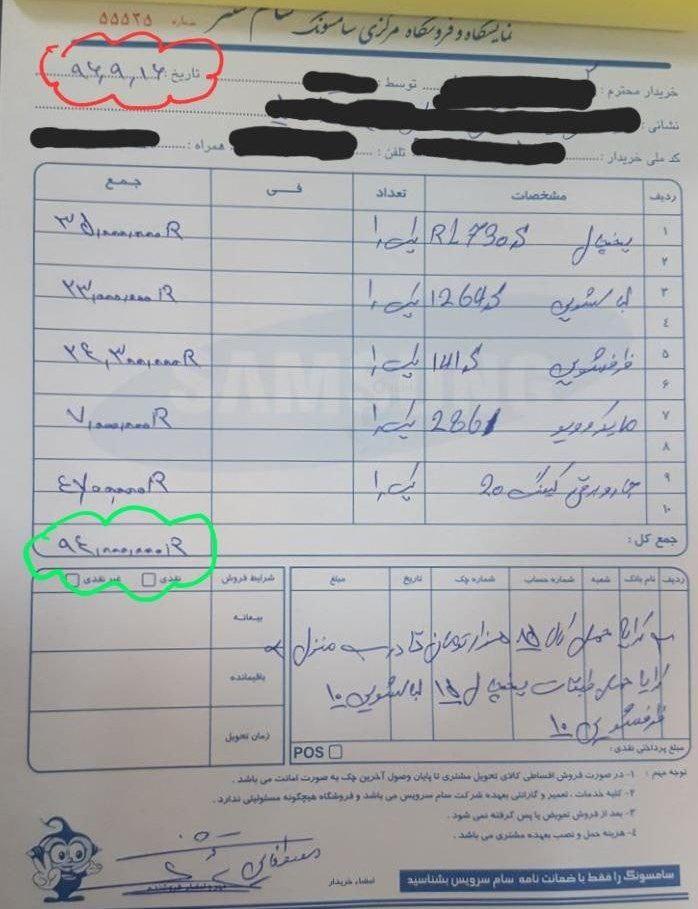 نمایشگاه و فروشگاه مرکزی سامسونگ سام سنتر
شماره ۵۵۵۲۵
تاریخ: ۹۶,۹,۱۶
خریدار محترم: توسط:
نشانی:
کد ملی خریدار: تلفن: همراه:
ردیف مشخصات تعداد فی جمع
۱ یخچال RL730 یک ۳۵,۰۰۰,۰۰۰R
۲
۳ لباسشویی 1264 یک ۲۳,۰۰۰,۰۰۰R
۴
۵ ظرفشویی 141 یک ۲۴,۳۰۰,۰۰۰R
۶
۷ مایکروویو 286 یک ۷,۰۰۰,۰۰۰R
۸
۹ جاروبرقی کینگ 20 یک ۴۷۰۰,۰۰۰R
۱۰
SAMSUNG
جمع کل: ۹۴,۰۰۰,۰۰۰R
ردیف نام بانک شعبه شماره حساب شماره چک تاریخ مبلغ
شرایط فروش نقدی غیر نقدی
بیعانه
باقیمانده
زمان تحویل
کرایه حمل ۸۵ هزار تومان تا درب منزل
کرایه حمل طبقات یخچال ۱۵ لباسشویی ۱۰
ظرفشویی ۱۰
مبلغ پرداختی نقدی: POS
توجه مهم: ۱- در صورت فروش اقساطی کالای تحویل مشتری تا پایان وصول آخرین چک به صورت امانت می باشد.
۲- کلیه خدمات، تعمیر و گارانتی بعهده شرکت سام سرویس می باشد و فروشگاه هیچگونه مسئولیتی ندارد.
۳- بعد از فروش تعویض یا پس گرفته نمی شود.
۴- هزینه حمل و نصب بعهده مشتری می باشد.
امضاء خریدار
سامسونگ را فقط با ضمانت نامه سام سرویس بشناسید